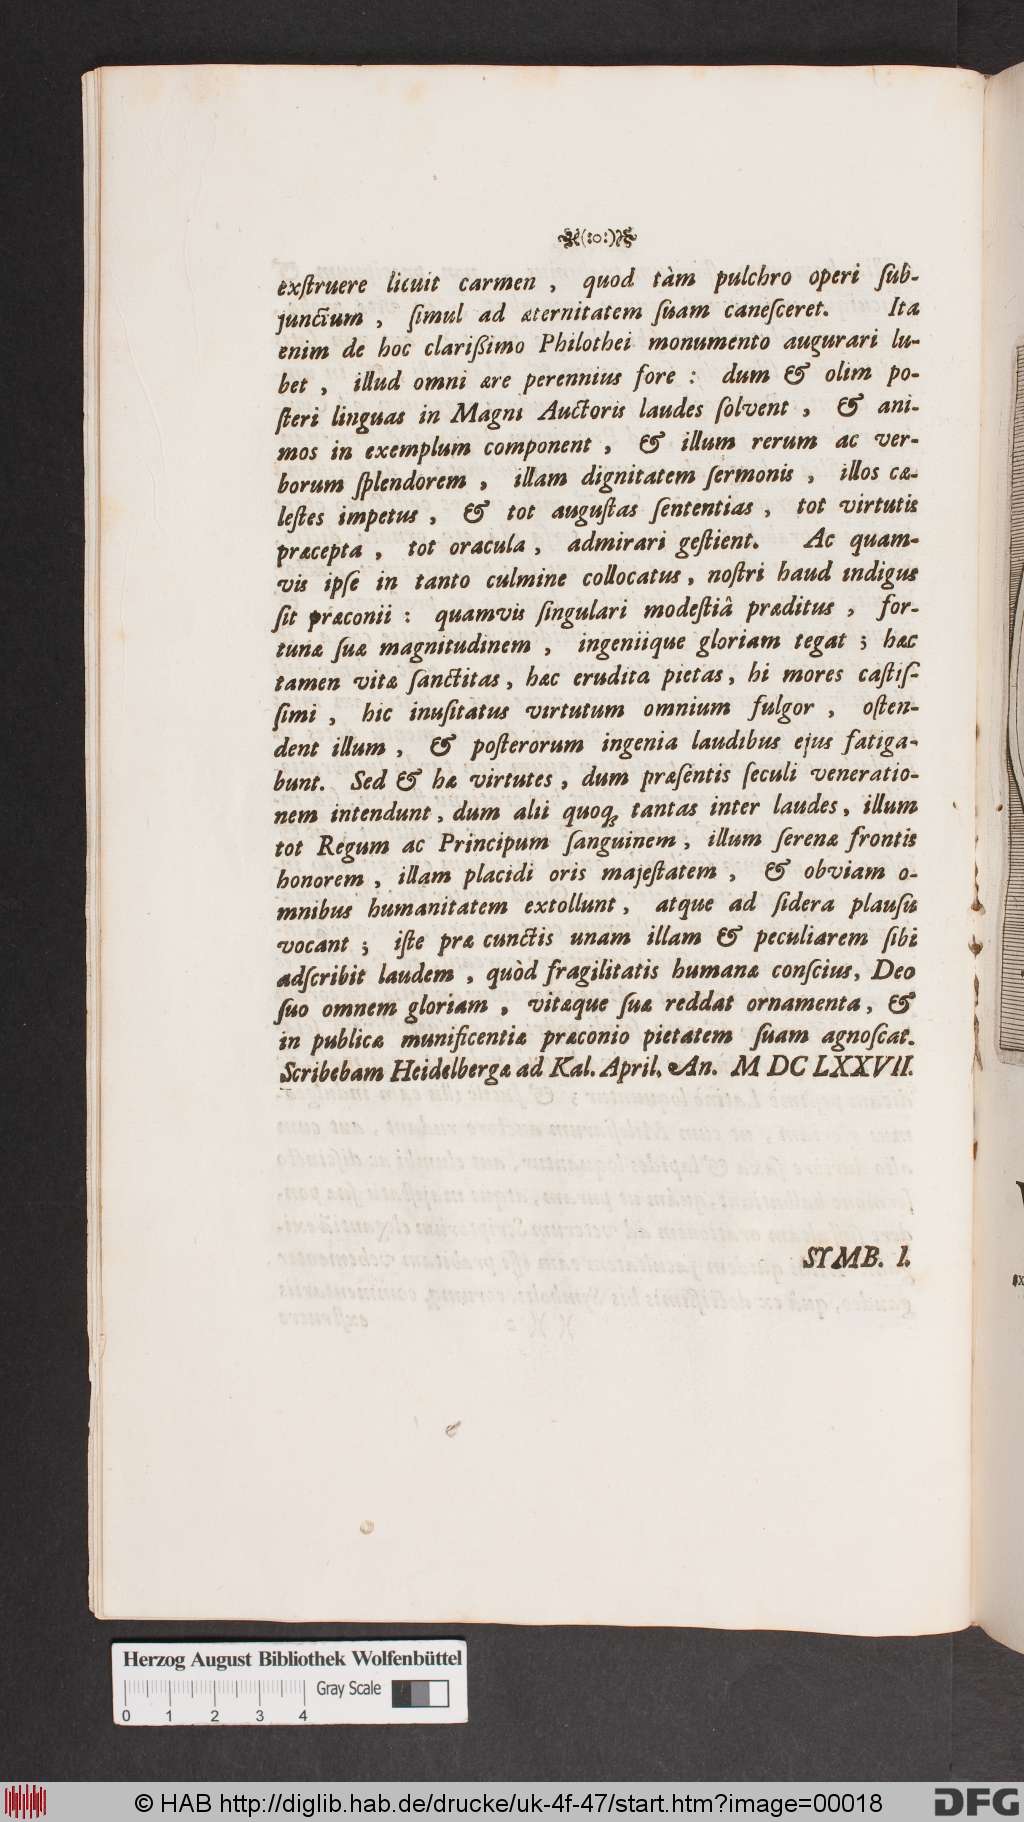 (:o:)
exſtruere licuit carmen , quod tàm pulchro operi ſub-
junctum , ſimul ad æternitatem ſuam caneſceret. Ita
enim de hoc clarißimo Philothei monumento augurari lu-
bet , illud omni ære perennius fore : dum & olim po-
ſteri linguas in Magni Auctoris laudes ſolvent , & ani-
mos in exemplum component , & illum rerum ac ver-
borum ſplendorem , illam dignitatem ſermonis , illos cæ-
leſtes impetus , & tot auguſtas ſententias , tot virtutis
præcepta , tot oracula , admirari geſtient. Ac quam-
vis ipſe in tanto culmine collocatus , noſtri haud indigus
ſit præconii : quamvis ſingulari modeſtiâ præditus , for-
tunæ ſuæ magnitudinem , ingeniique gloriam tegat ; hæc
tamen vitæ ſanctitas , hæc erudita pietas , hi mores caſtiſ-
ſimi , hic inuſitatus virtutum omnium fulgor , oſten-
dent illum , & poſterorum ingenia laudibus ejus fatiga-
bunt. Sed & hæ virtutes , dum præſentis ſeculi veneratio-
nem intendunt , dum alii quoq; tantas inter laudes , illum
tot Regum ac Principum ſanguinem , illum ſerenæ frontis
honorem , illam placidi oris majeſtatem , & obviam o-
mnibus humanitatem extollunt , atque ad ſidera plauſu
vocant ; iſte præ cunctis unam illam & peculiarem ſibi
adſcribit laudem , quòd fragilitatis humanæ conſcius, Deo
ſuo omnem gloriam , vitæque ſuæ reddat ornamenta , &
in publicæ munificentiæ præconio pietatem ſuam agnoſcat.
Scribebam Heidelbergæ ad Kal. April. An. M DC LXXVII.
SYMB. I.
Herzog August Bibliothek Wolfenbüttel
Gray Scale
0 1 2 3 4
© HAB http://diglib.hab.de/drucke/uk-4f-47/start.htm?image=00018
DFG